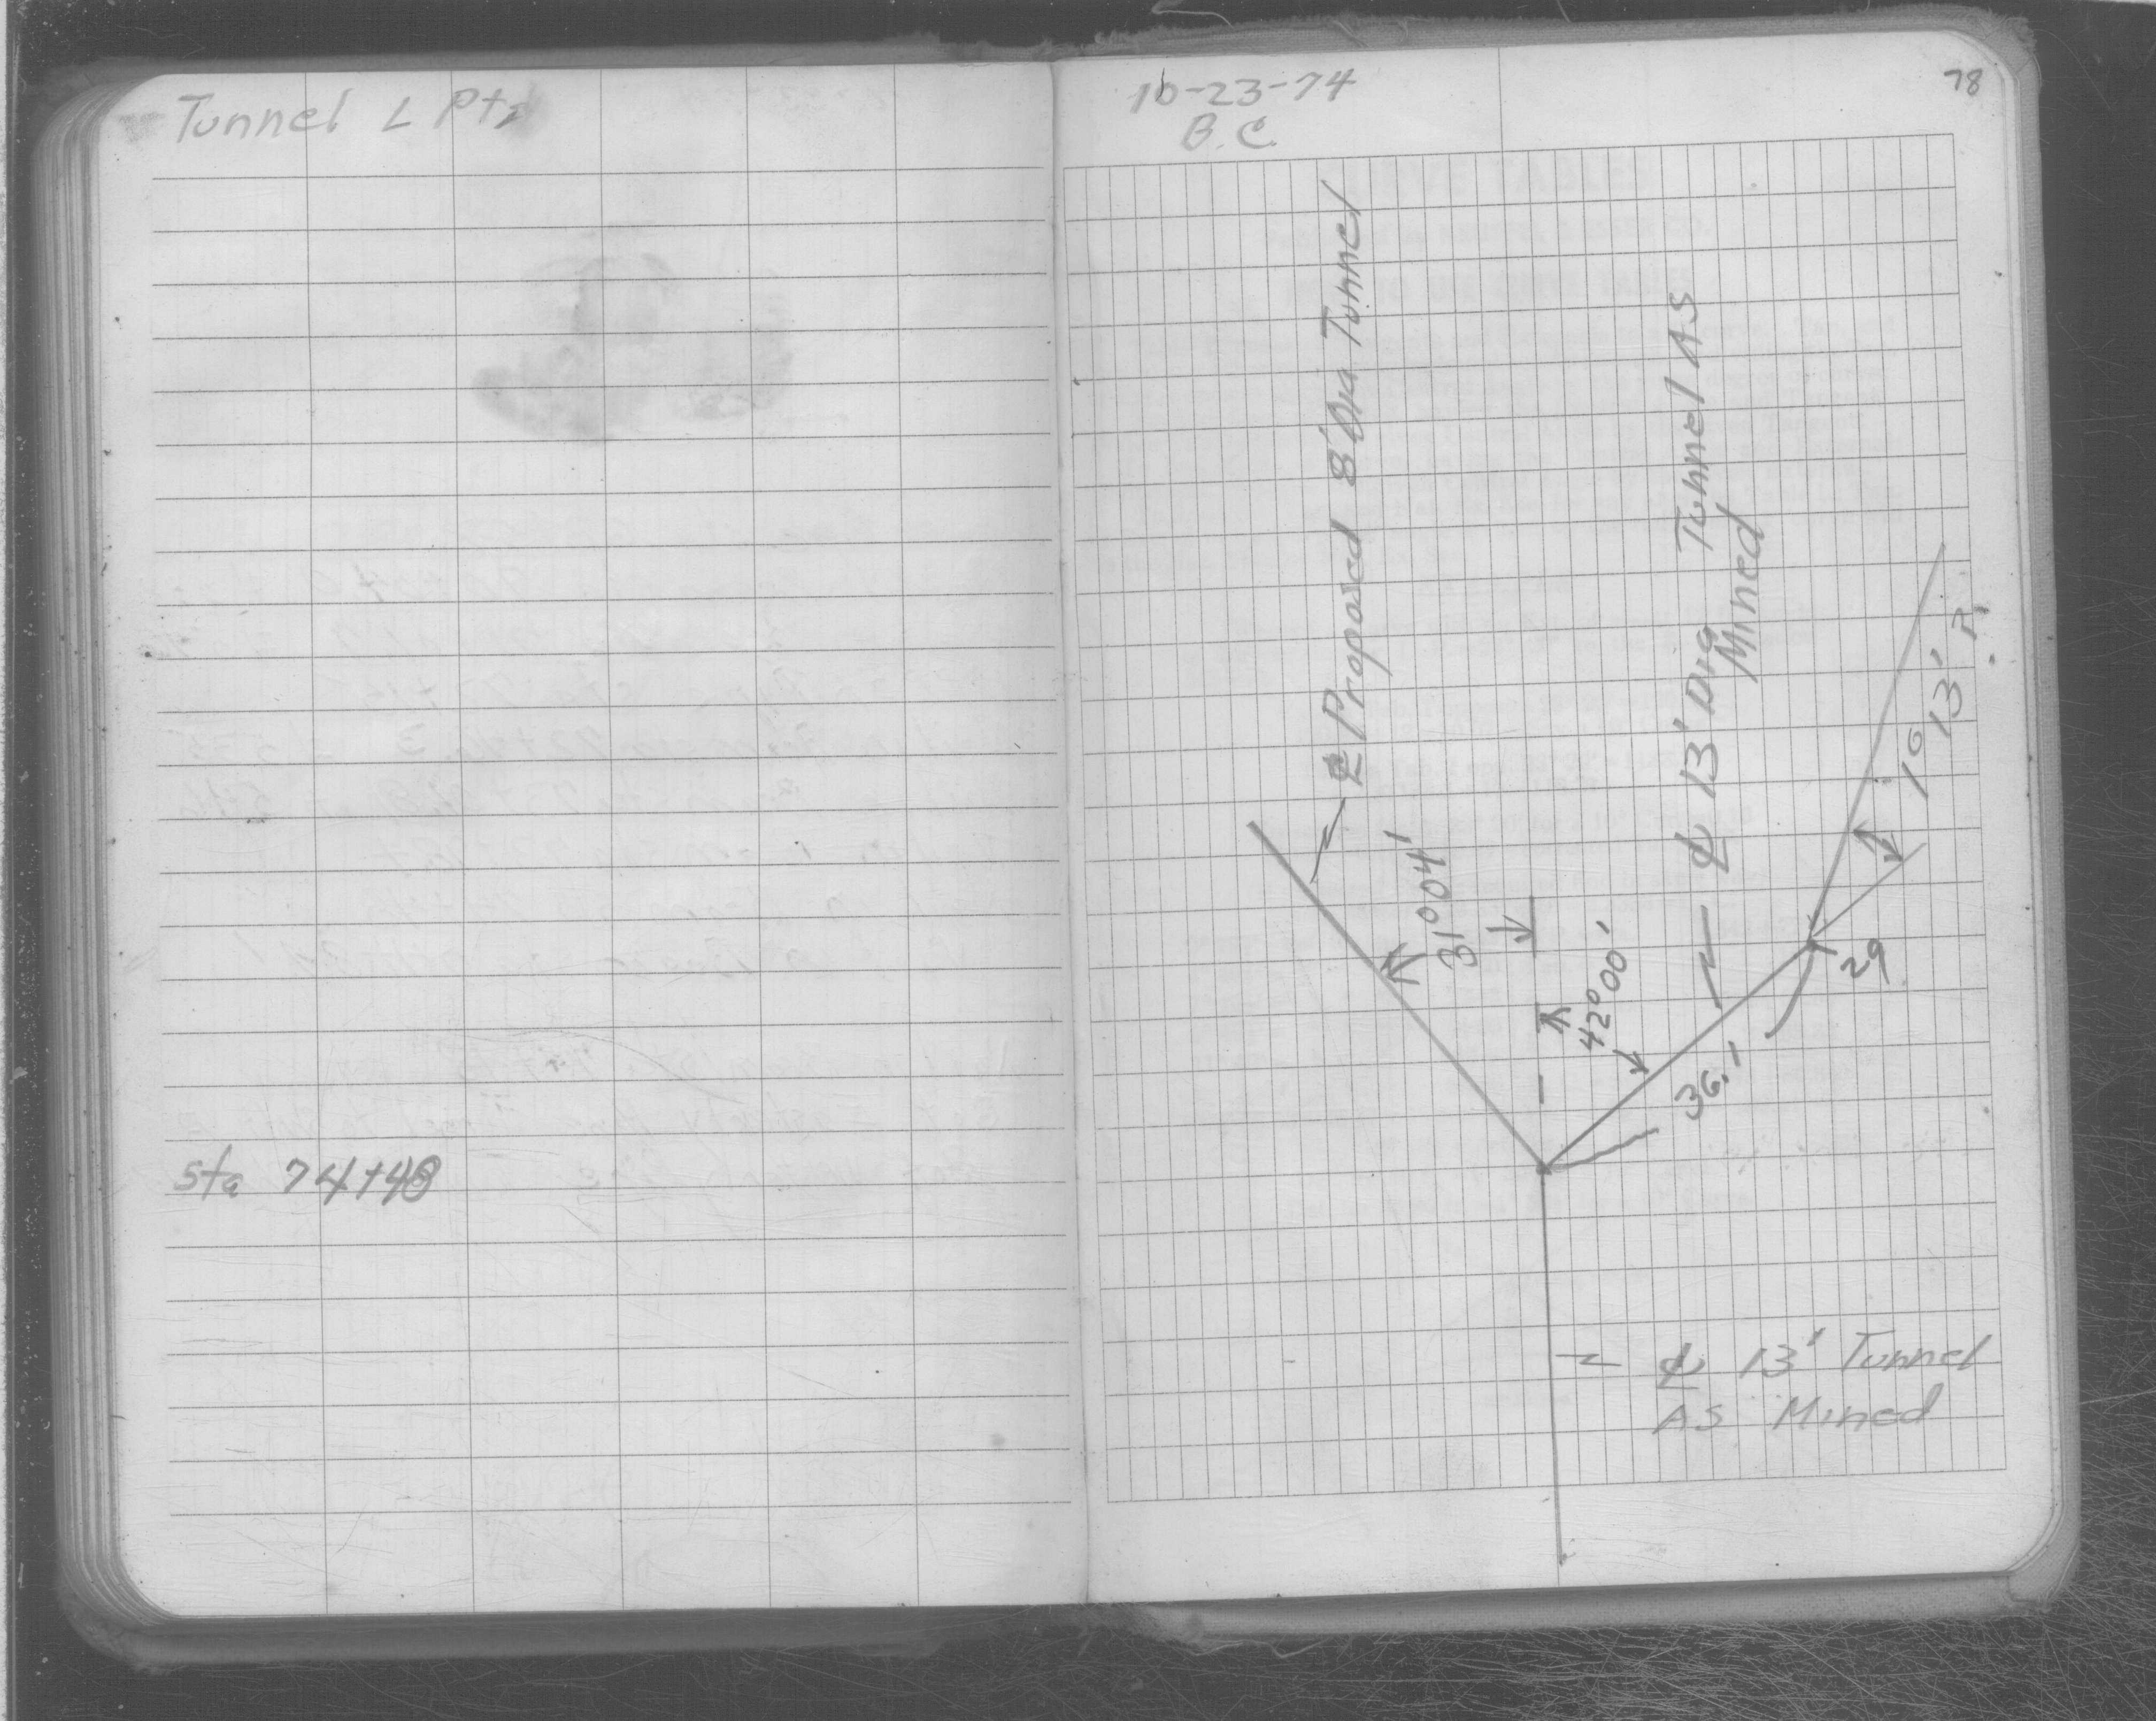 Tunnel L Pts
sta 74+48
10-23-74
B.C.
78
℄ Proposed 8' Dia Tunnel
℄ 13' Dia Tunnel AS
Mined
31°04'
42°00'
36.1
29
1° 13'
℄ 13' Tunnel
AS Mined